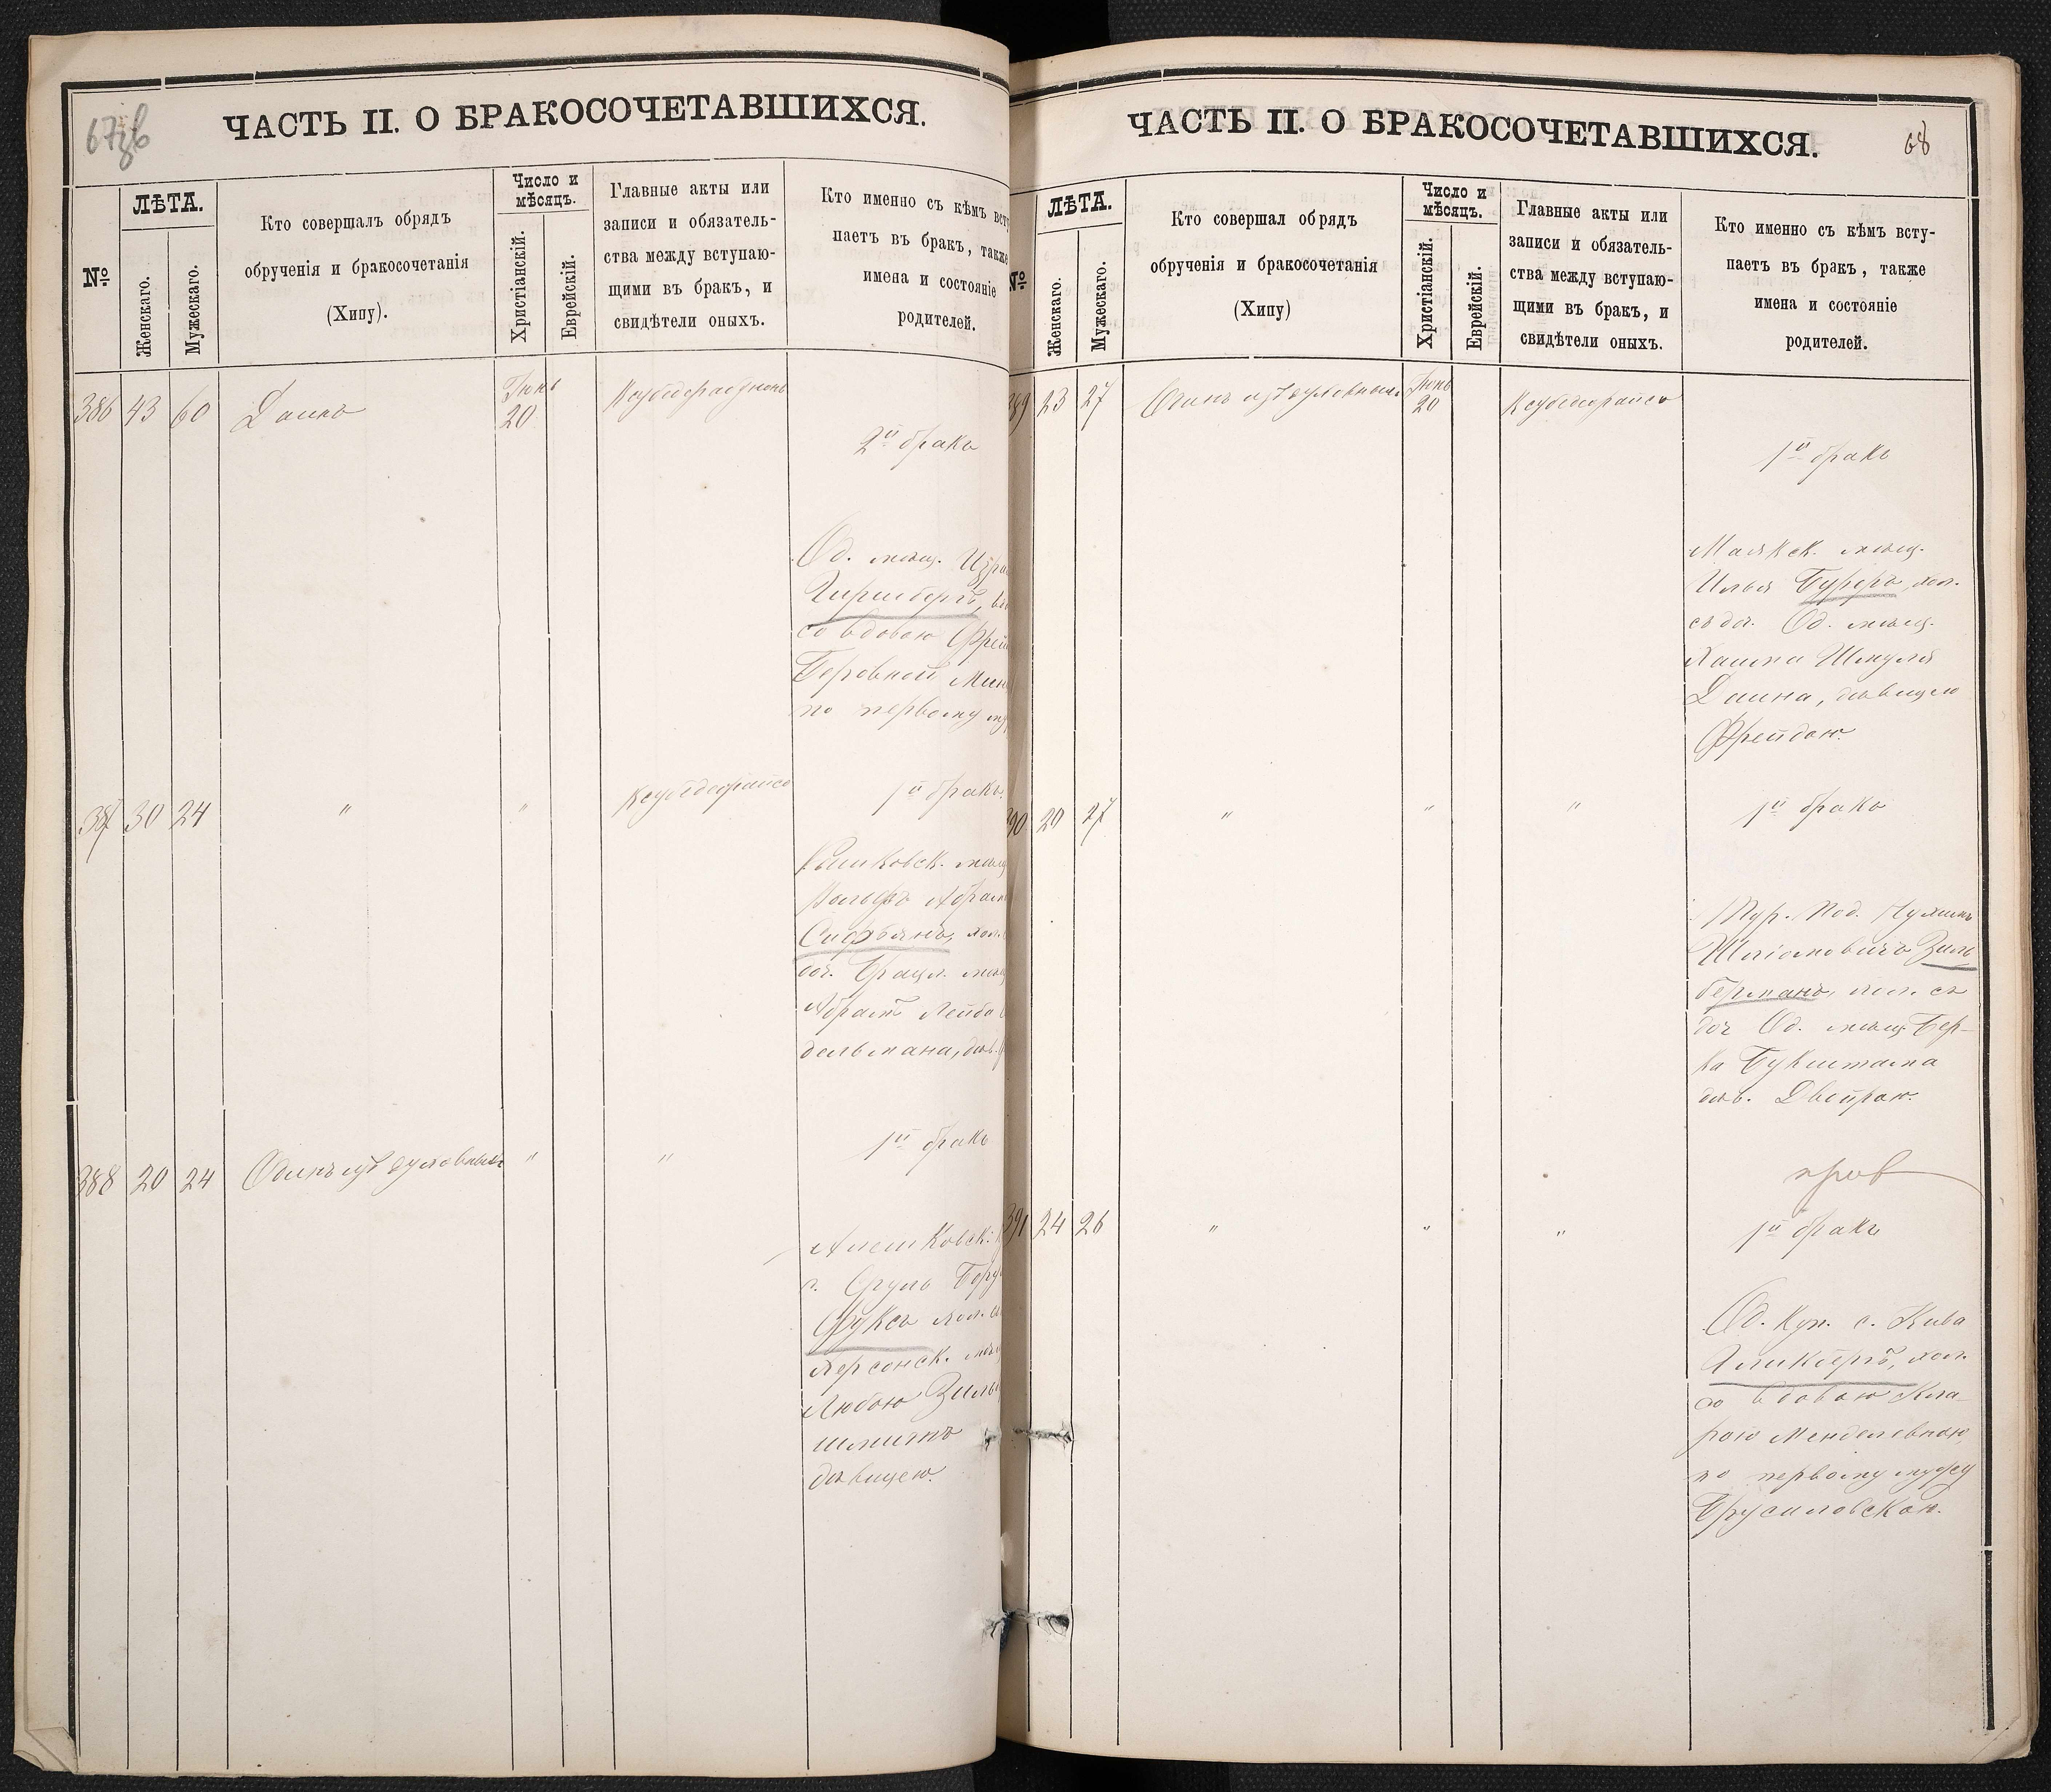 67об
ЧАСТЬ II. О БРАКОСОЧЕТАВШИХСЯ.
№
ЛѢТА.
Женскаго.
Мужескаго.
Кто совершалъ обрядъ
обрученія и бракосочетанія
(Хипу).
Число и
мѣсяцъ.
Христіанскій.
Еврейскій.
Главные акты или
записи и обязатель-
ства между вступаю-
щими въ бракъ, и
свидѣтели оныхъ.
Кто именно съ кѣмъ всту
паетъ въ бракъ, также
имена и состояніе
родителей.
386 43 60 Даинъ Іюнь
20
2й бракъ
Од. мѣщ. Изра
Гиршбергъ,
со вдовою Фрей
Беровной
по первому му
387 30 24 " " Ксубедерайсо 1й бракъ
мѣщ
Абрам
хол.
доч. Брацл. мѣщ
Абрам Лейба
дельмана, дѣв.
388 20 24 Одинъ изъ духовныхъ " " 1й бракъ
Алешковск.
с. Сруль Бору
Фуксъ хол. съ
Херсонск. мѣщ
Любою Зиль
дѣвицею.
68
ЧАСТЬ II. О БРАКОСОЧЕТАВШИХСЯ.
№
ЛѢТА.
Женскаго.
Мужескаго.
Кто совершал обрядъ
обрученія и бракосочетанія
(Хипу)
Число и
мѣсяцъ.
Христіанскій.
Еврейскій.
Главные акты или
записи и обязатель-
ства между вступаю-
щими въ бракъ, и
свидѣтели оныхъ.
Кто именно съ кѣмъ всту-
паетъ въ бракъ, также
имена и состояніе
родителей.
389 23 27 Одинъ изъ духовныхъ Іюнь
20 Ксубедерайсо
1й бракъ
Маякск. мѣщ.
Илья Буферъ, хол.
съ доч. Од. мѣщ.
Хаима Шмуля
Даина, дѣвицею
Фрейдою.
390 20 27 " " " 1й бракъ
Тур. под. Нухимъ
Шліомовичъ Зиль
берманъ, хол. съ
доч Од. мѣщ. Бер-
ка Букштама
дѣв. Двойрою.
391 24 26 " " " 1й бракъ
Од. куп. с. Кива
Гликбергъ, хол.
со вдовою Кла-
рою Менделевною,
по первому мужу
Брусиловскою.